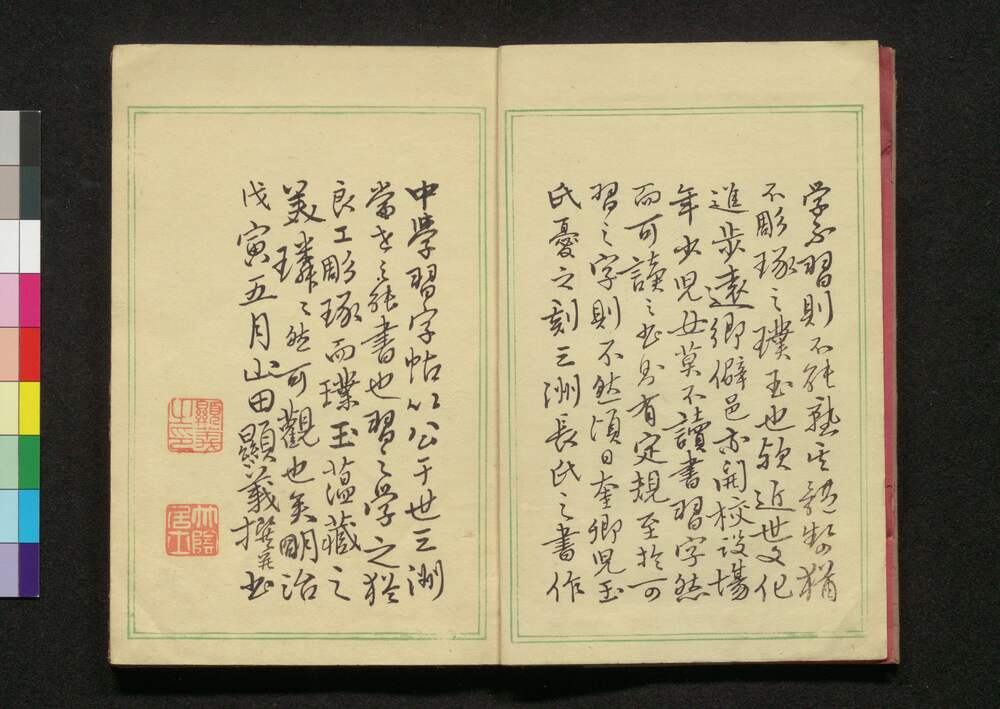 学不習則不能熟猶
不彫琢之璞玉也近世文化
進歩遠郷僻邑亦開校設場
年少児女莫不讀書習字然
而可讀之書則有定規至於可
習之字則不然頃日奎卿児玉
氏憂之刻三洲長氏之書作
中學習字帖以公于世三洲
當世之能書也習之学之猶
良工彫琢而璞玉薀藏之
美璘々然可觀也矣明治
戊寅五月山田顯義撰并書
顯義之印